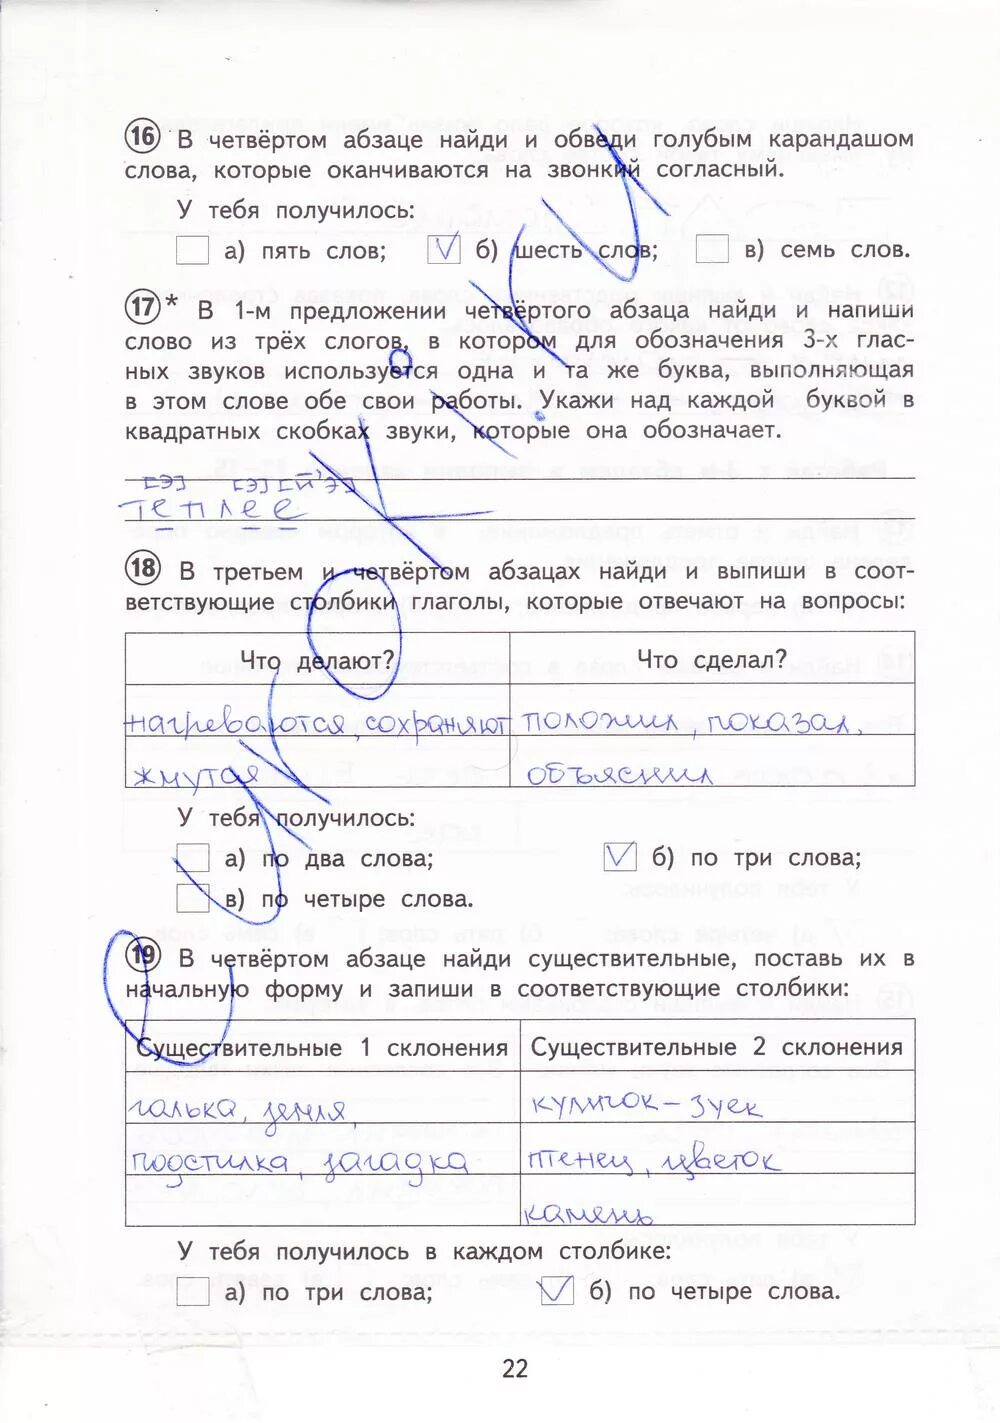 16 В четвёртом абзаце найди и обведи голубым карандашом
слова, которые оканчиваются на звонкий согласный.
У тебя получилось:
а) пять слов; V б) шесть слов; в) семь слов.
17* В 1-м предложении четвёртого абзаца найди и напиши
слово из трёх слогов, в котором для обозначения 3-х глас-
ных звуков используется одна и та же буква, выполняющая
в этом слове обе свои работы. Укажи над каждой буквой в
квадратных скобках звуки, которые она обозначает.
[э] [э] [й'э]
теплее
18 В третьем и четвёртом абзацах найди и выпиши в соот-
ветствующие столбики глаголы, которые отвечают на вопросы:
Что делают? Что сделал?
нагреваются, сохраняют положил, показал,
жмутся объяснил
У тебя получилось:
а) по два слова; V б) по три слова;
в) по четыре слова.
19 В четвёртом абзаце найди существительные, поставь их в
начальную форму и запиши в соответствующие столбики:
Существительные 1 склонения Существительные 2 склонения
галька, земля, куличок - зуек
подстилка, загадка птенец, цветок
камень
У тебя получилось в каждом столбике:
а) по три слова; V б) по четыре слова.
22